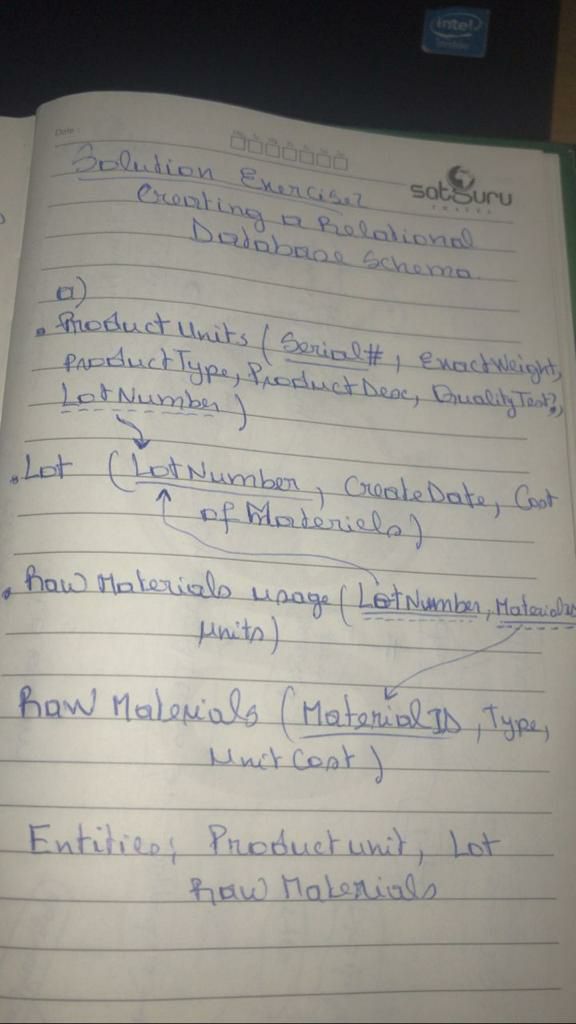 intel
inside
Date :
satguru
TRAVEL
Solution Exercise2
Creating a Relational
Database Schema.
a)
• ProductUnits (Serial#, ExactWeight,
ProductType, ProductDesc, QualityTest?,
LotNumber)
• Lot (LotNumber, CreateDate, Cost
of Materials)
• Raw Materials usage (LotNumber, MaterialID
Units)
Raw Materials (MaterialID, Type,
UnitCost)
Entities; Product unit, Lot
Raw Materials